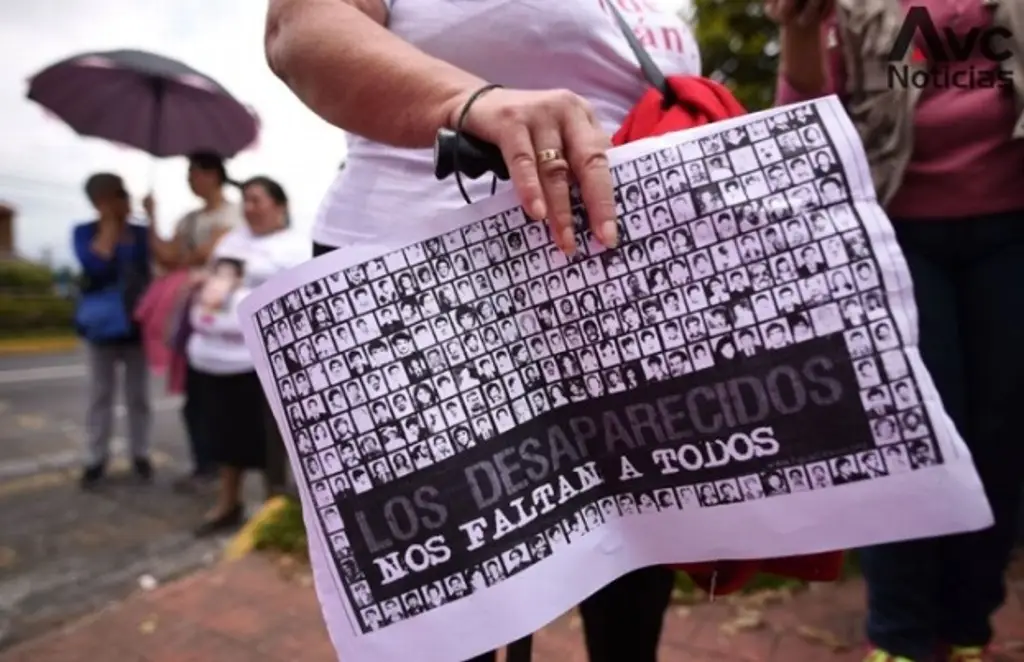 Avc
Noticias
LOS DESAPARECIDOS
NOS FALTAN A TODOS